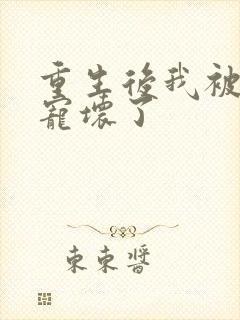 重生後我被
寵壞了
束束醬